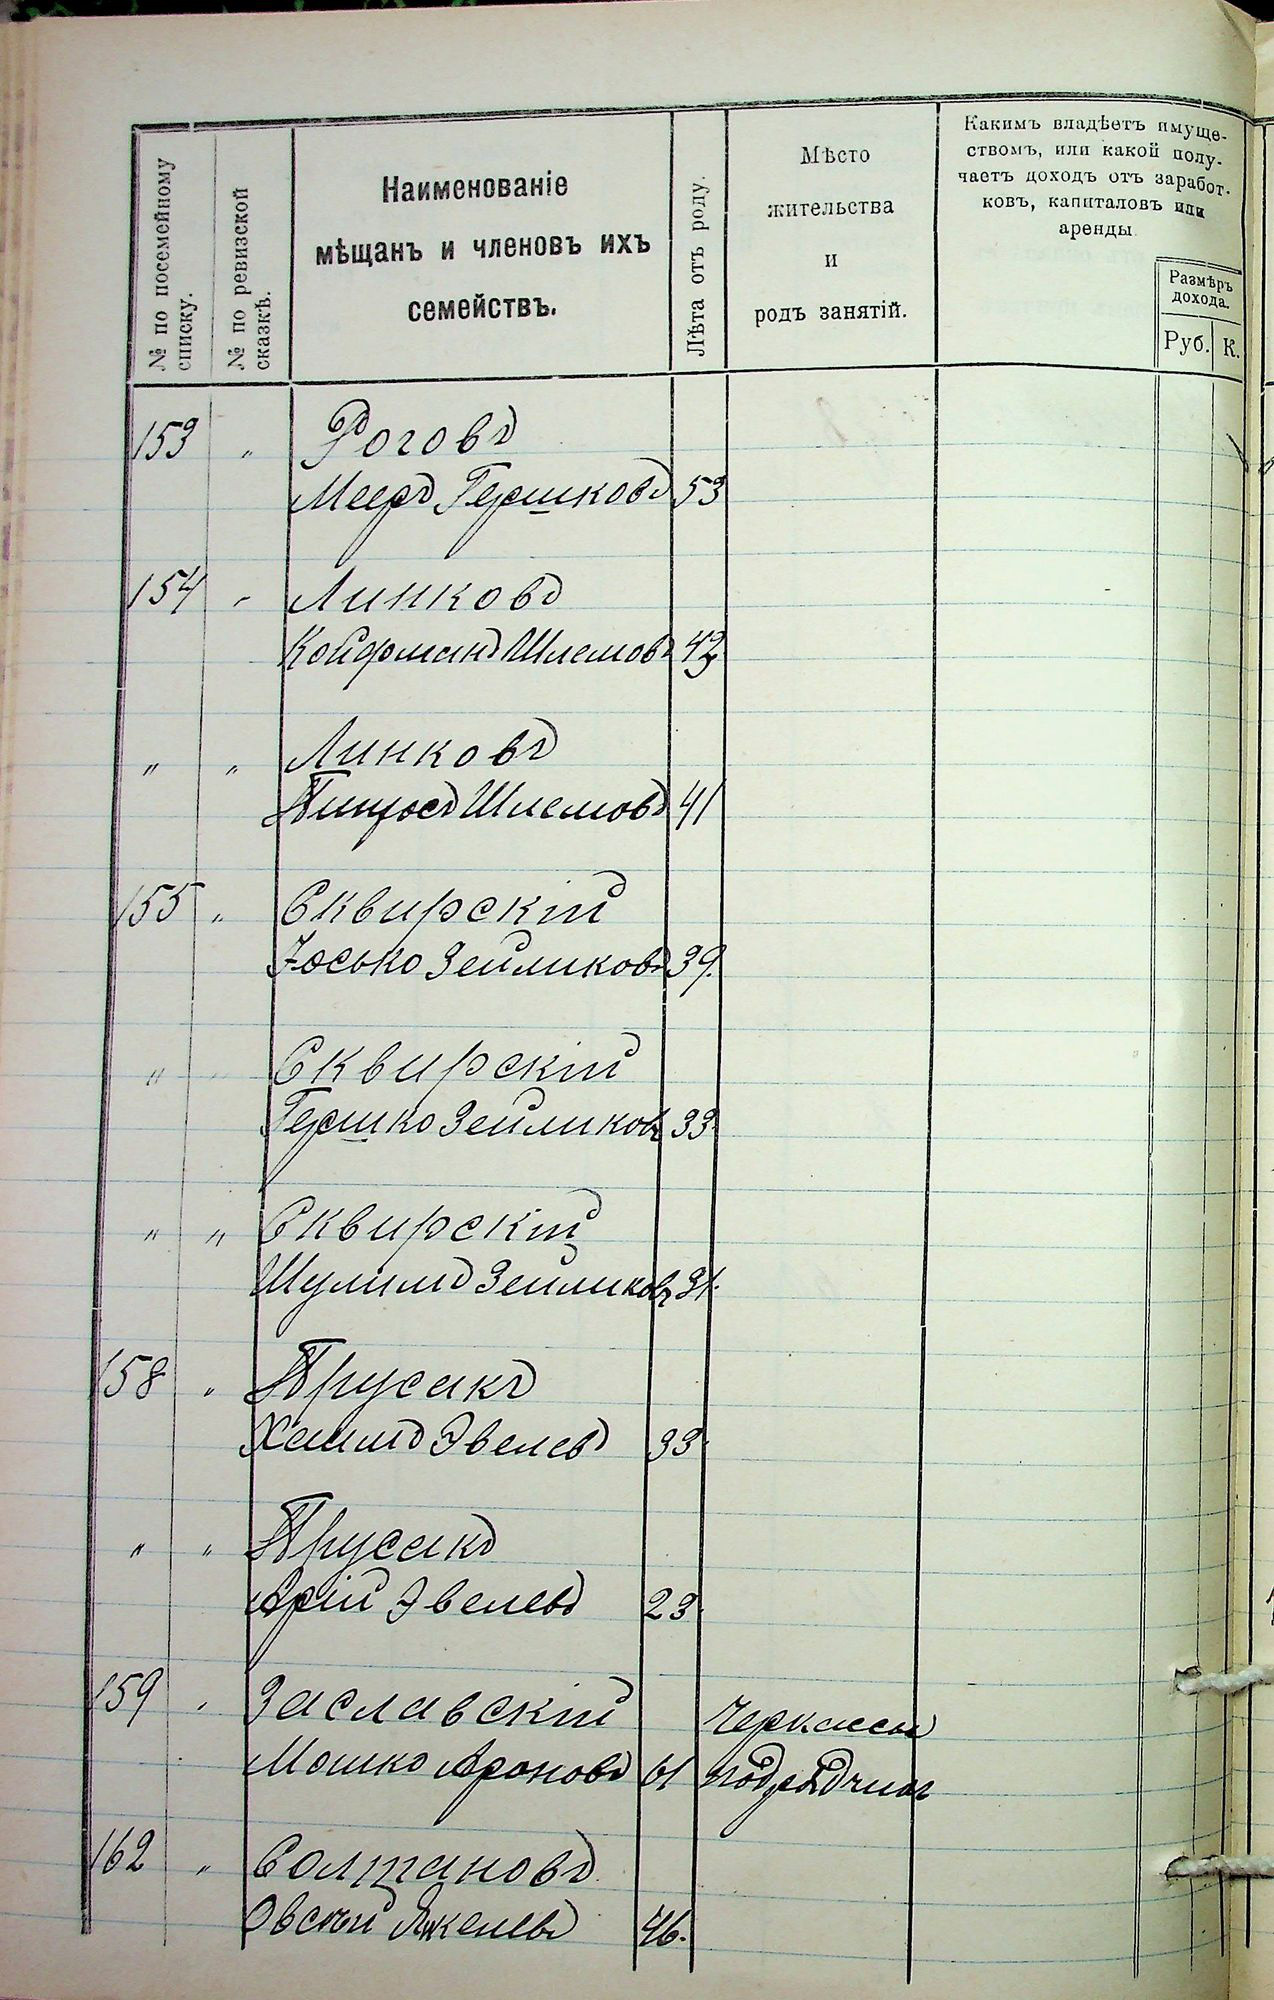 № по посемейному списку.
№ по ревизской сказкѣ.
Наименованіе
мѣщанъ и членовъ ихъ
семействъ.
Лѣта отъ роду.
Мѣсто
жительства
и
родъ занятій.
Какимъ владѣетъ имуще-
ствомъ, или какой полу-
чаетъ доходъ отъ заработ-
ковъ, капиталовъ или
аренды
Размѣръ
дохода.
Руб. К.
153 " Роговъ
Мееръ Гершковъ 53
154 " Линковъ
Койфманъ Шлемовъ 42
" " Линковъ
Пинхосъ Шлемовъ 41
155 " Сквирскій
Іосько Зейликовъ 39.
" " Сквирскій
Гершко Зейликовъ 33.
" " Сквирскій
Шулимъ Зейликовъ 31.
158 " Прусакъ
Хаимъ Эвелевъ 33.
" " Прусакъ
Арій Эвелевъ 23.
159 " Заславскій
Черкассы
Мошко Ароновъ 61 подрядчикъ
162 " Солтановъ
Овсѣй Янкелевъ 46.